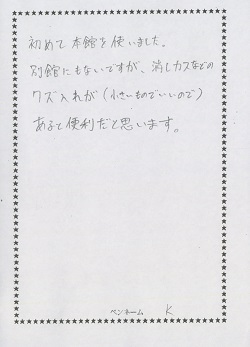 初めて本館を使いました。
別館にもないですが、消しカスなどの
クズ入れが(小さいものでいいので)
あると便利だと思います。
ペンネーム K